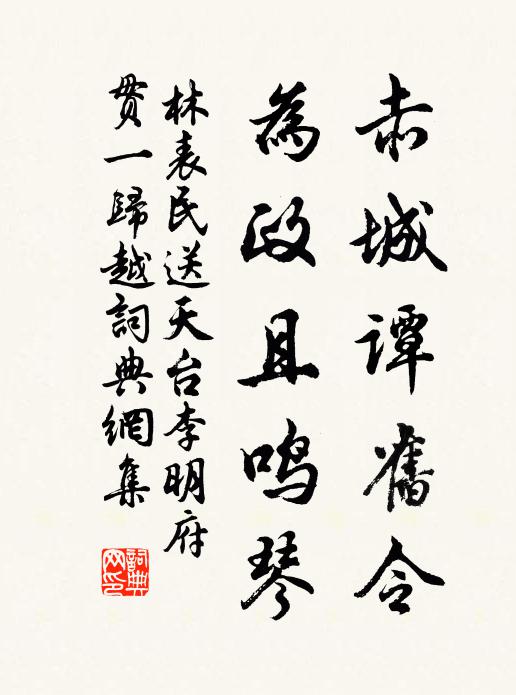 赤城谭舊令
為政且鳴琴
林表民送天台李明府
贯一歸越詞典網集
詞典
网印